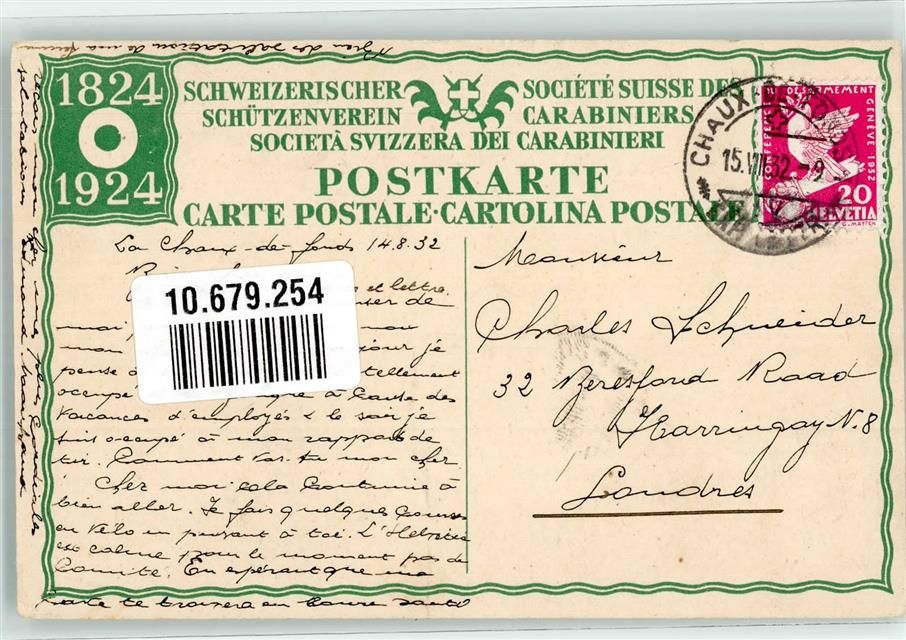 1824
1924
SCHWEIZERISCHER
SCHÜTZENVEREIN
SOCIÉTÉ SUISSE DES
CARABINIERS
SOCIETÀ SVIZZERA DEI CARABINIERI
POSTKARTE
CARTE POSTALE·CARTOLINA POSTALE
DÉSARMEMENT
GENÈVE 1932
20
HELVETIA
CHAUX
15.VIII.32.-9
10.679.254
La Chaux-de-fonds 14.8.32
et lettre
de
moi
mon
jour je
pense à tellement
occupé à cause des
vacances d'employés & le soir je
suis occupé à mon rapport de
tir. Comment vas-tu mon cher
Chez moi cela continue à
bien aller. Je fais quelques courses
en vélo en pensant à toi. L'Helvétie
est calme pour le moment pas de
Comité. En espérant que ma
carte te trouvera en bonne santé
mon cher
mes plus cordiales
salutations
Bien des salutations de ma femme
Monsieur
Charles Schneider
32 Beresford Road
Harringay N.8
Londres